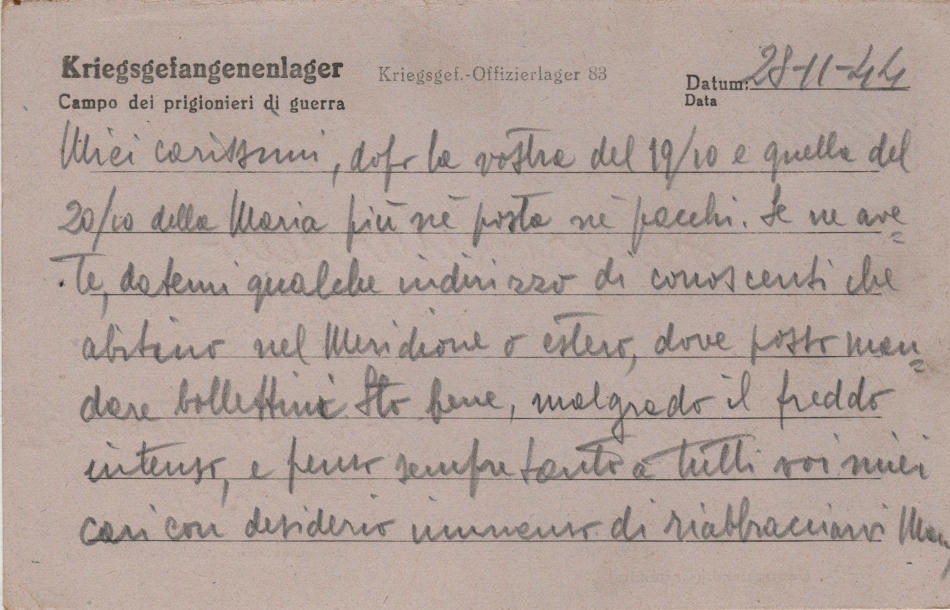 Kriegsgefangenenlager
Campo dei prigionieri di guerra
Kriegsgef.-Offizierlager 83
Datum: 28-11-44
Data
Miei carissimi, dopo la vostra del 19/10 e quella del
20/10 della Maria più nè posta nè pacchi. Se ne ave=
te, datemi qualche indirizzo di conoscenti che
abitino nel Meridione o estero, dove posso man=
dare bollettini Sto bene, malgrado il freddo
intenso, e penso sempre tanto a tutti voi miei
cari con desiderio immenso di riabbracciarvi